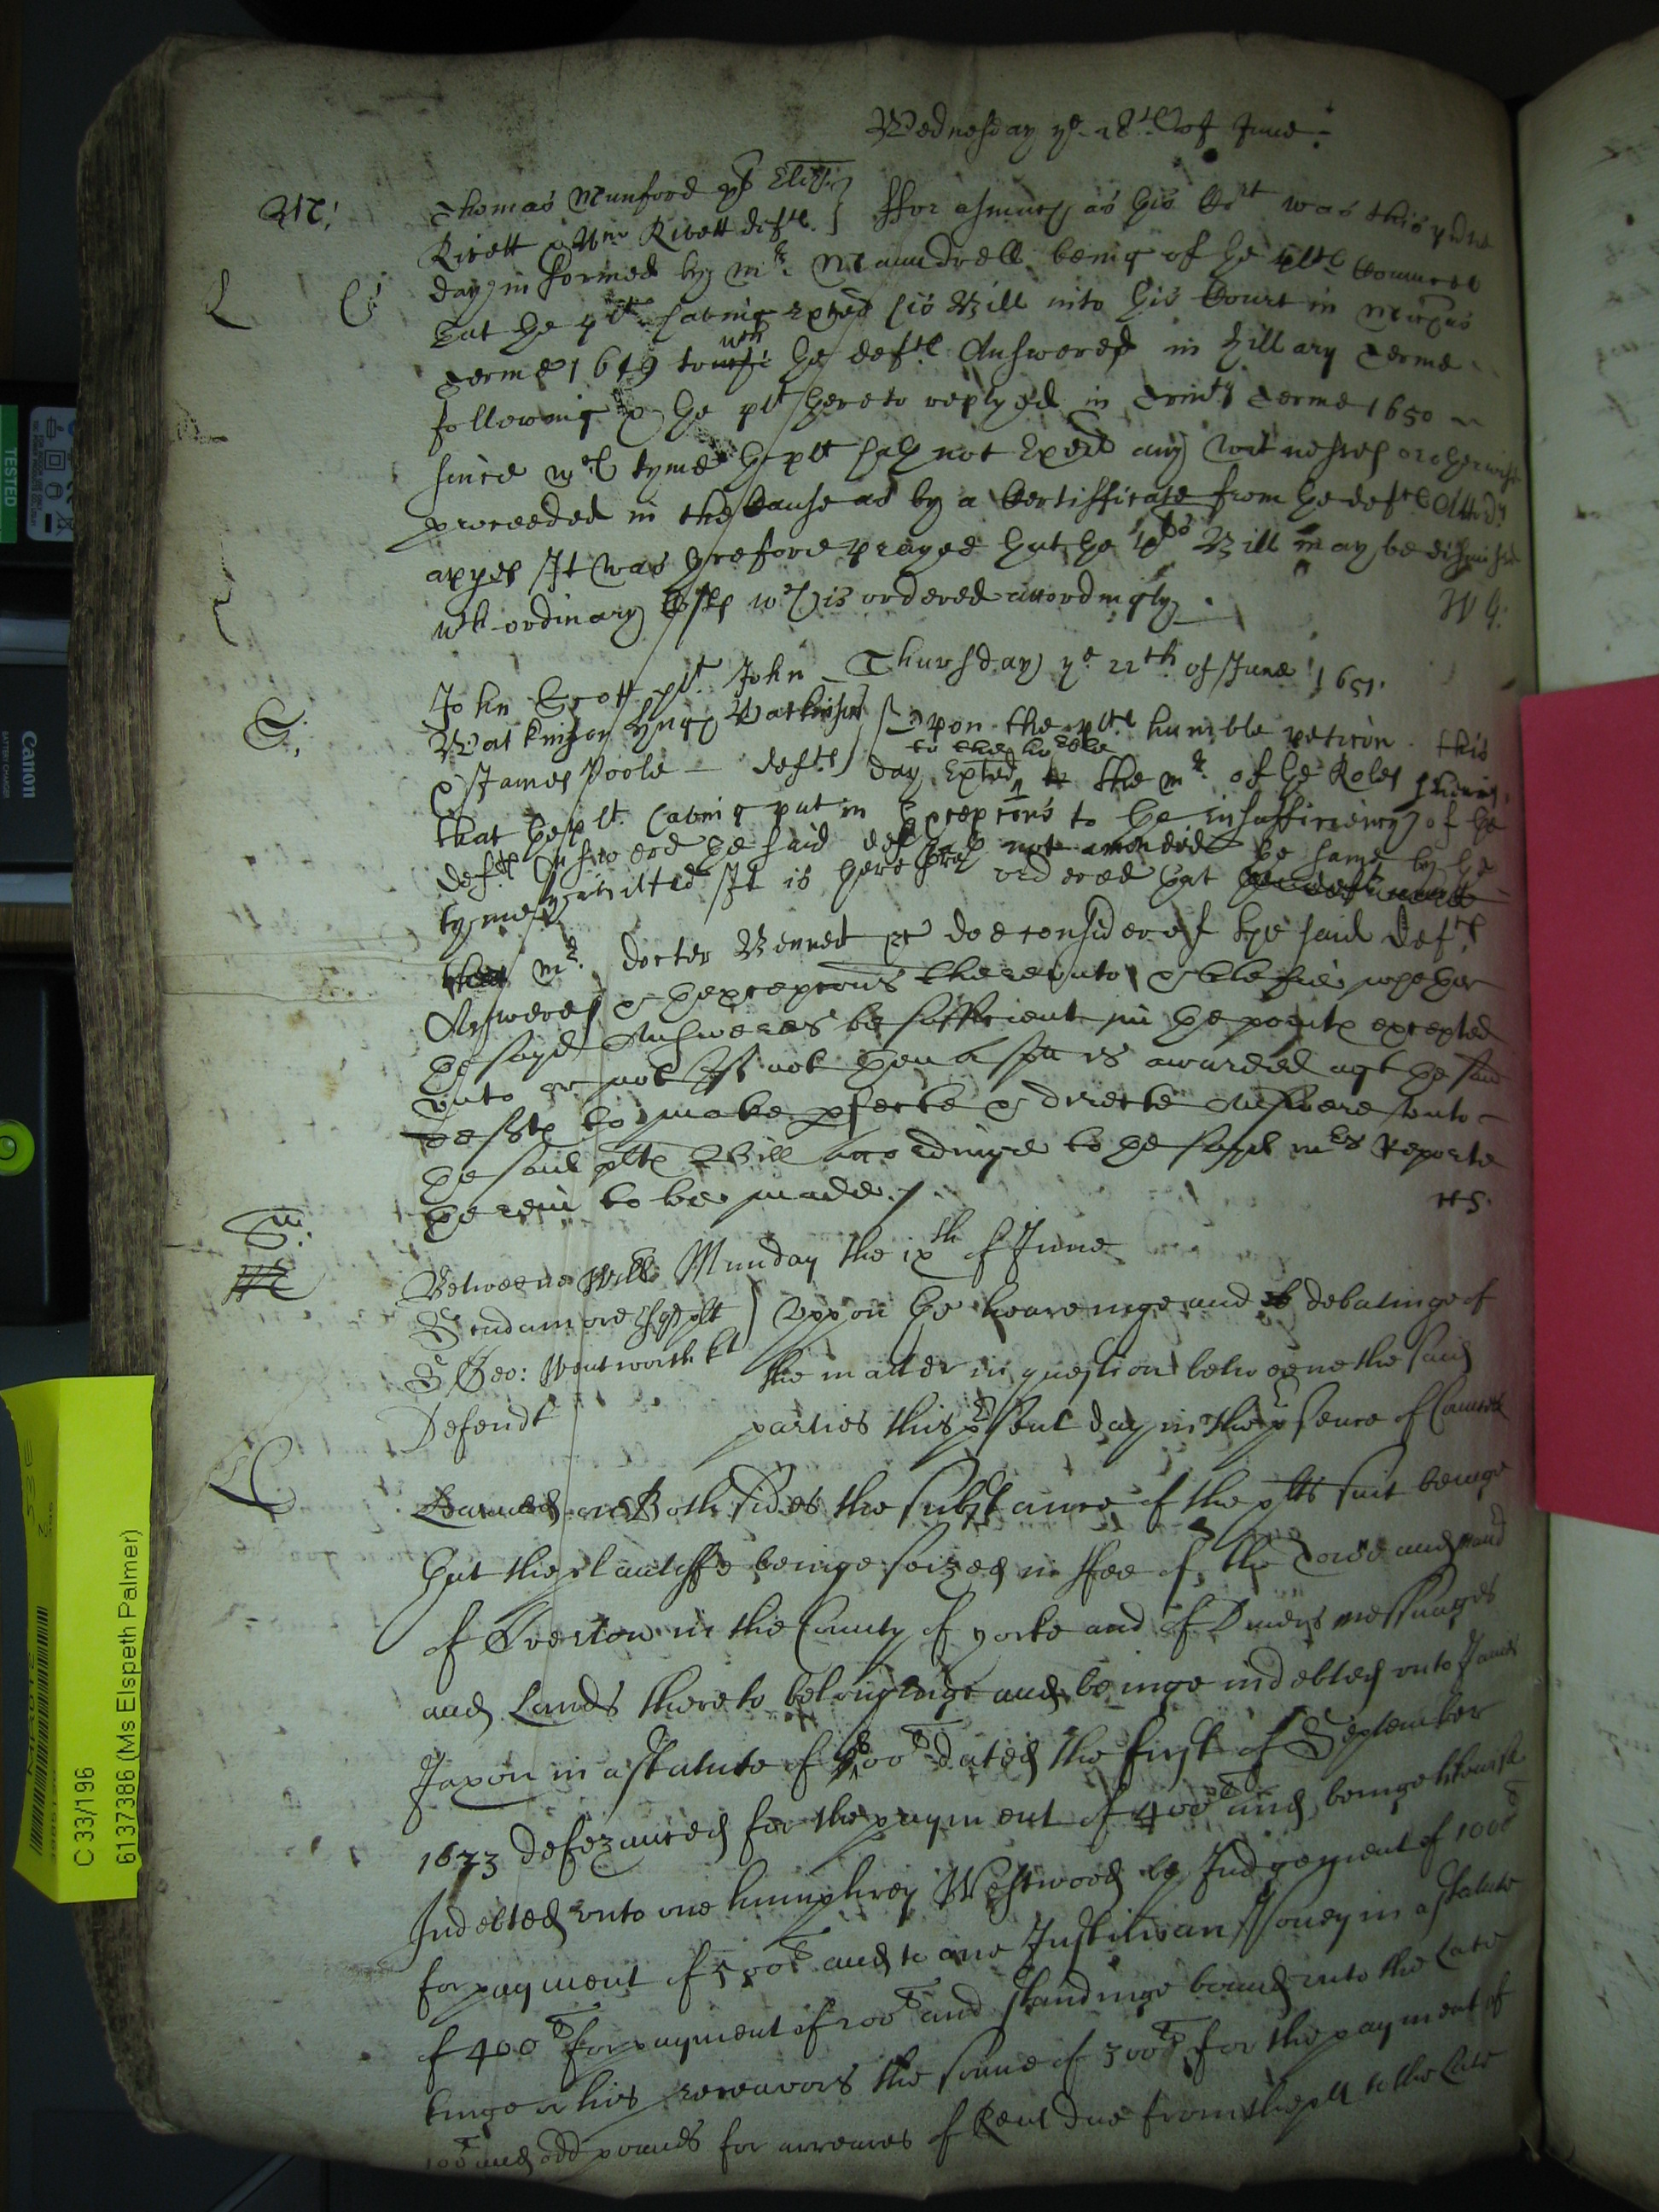 Wednesday ye 18th of June
M:
Thomas Munford plt Eliz:
Rivett & Wm Rivett defts. } fforasmuch as this Cort was this pnte
L C:
day informed by mr. Maundrell being of the plts Councell
that the plt having exhited his Bill into this Court in Michas
Terme 1649 to wch the defts Answered in Hillary Terme
following & the plt thereto replyed in Trinity Terme 1650
since wch tyme the plt hath not exaied any witnesses or otherwise
proceeded in the cause as by a Certifficate from the defts Attorny
appes It was therefore prayed that the plts Bill may be dismissed
wth ordinary Costs wch is ordered accordingly
Thursday ye 12th of June 1651.
S:
John Scott plt. John
Watkinson Watkinson } Upon the plts humble peticon this
& James Poole defts } day exhited to the hoble the mr of the Roles shewing
that the plt. having put in Excepcons to the insufficiency of the
defts Answere the said defts hath not amended the same by the
tyme limitted It is therefore ordered that
mr. docter Bennet doe consider of the said defts
Answeres & the excepcons thereunto & certifie whether
the sayd Answeres be sufficient in the points excepted
unto or not If not then a spa is awarded agt the said
defts to make pfecte & directe Answere unto
the said plts Bill accordinge to the sayd mrs Reporte
therein to be made
HS.
S:
Munday the ixth of June
Betweene Will
Scudamore Esq plt } Uppon the hearenge and debatinge of
Sr Geo: Wentworth kt the matter in question betweene the said
Defendt parties this psent day in the psence of Councell
LC
Learned on Both sides the substance of the plts suit beinge
that the plantiffe beinge seized in ffee of the
of Overton in the County of yorke and of Divers messuages
and Lands thereto belonginge and beinge indebted unto James
Jaxon in a statute of 800li dated the first of September
1633 defezanced for the payment of 400li and beinge likewise
Indebted unto one humphrey Westwood by Judgement of 1000li
for payment of 500li and to one Justinian Povey in a statute
of 400li for payment of 200li and standinge bound unto the Late
kinge or his receavors the some of 300li for the payment of
100li and odd pounds for arreares of Rent due from the plt to the Late
TESTED
Canon
BATTERY CHARGER
C 33/196
6137386 (Ms Elspeth Palmer)